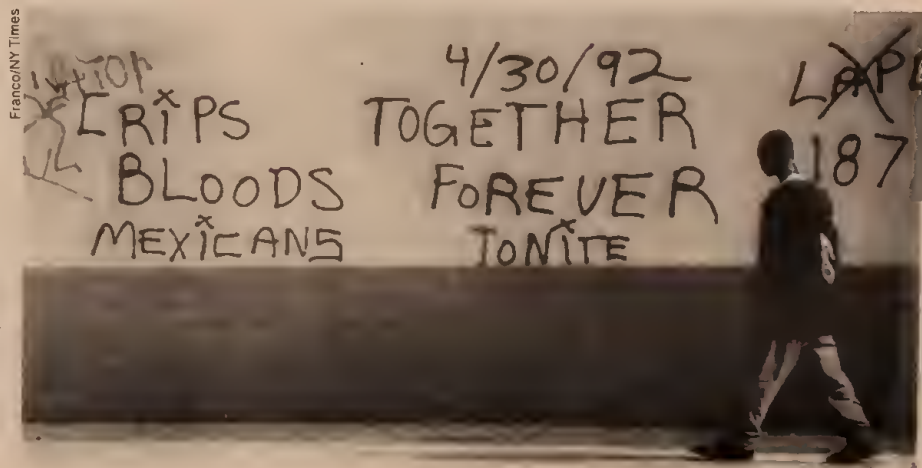 Franco/NY Times
CRiPS
BLOODS
MEXiCANS
4/30/92
TOGETHER
FOREVER
TONiTE
LAPD
187